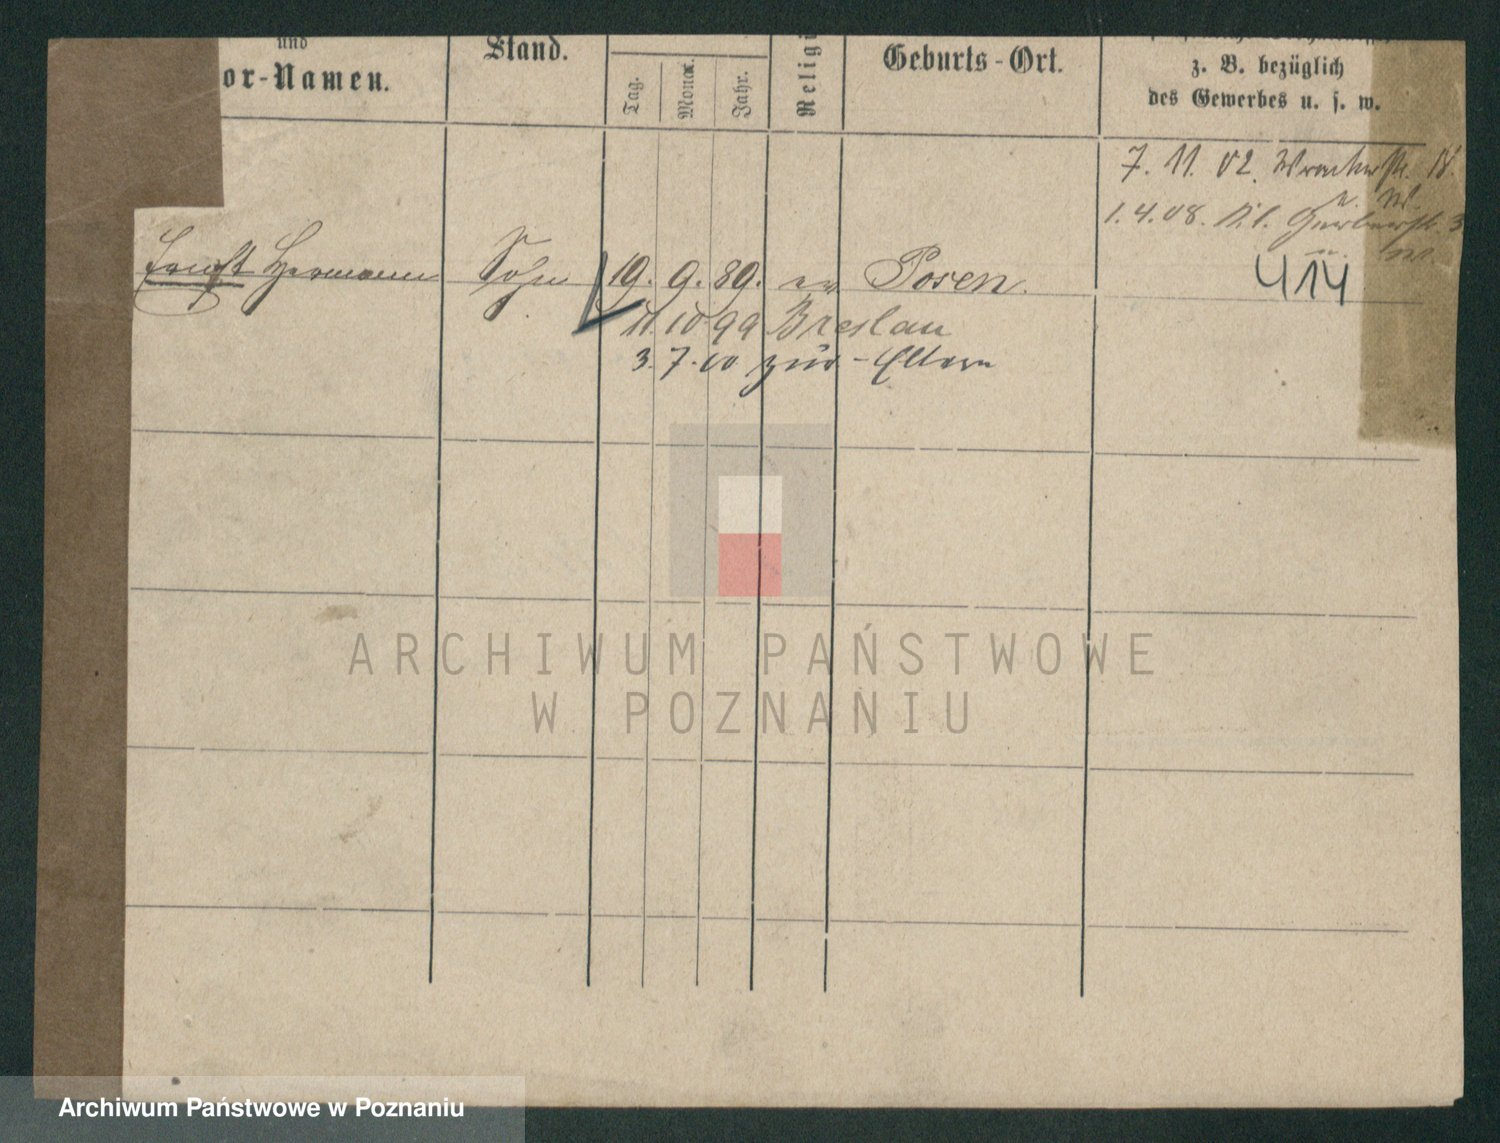 und
or-Namen.
Stand.
Tag.
Monat.
Jahr.
Religi
Geburts-Ort.
z. B. bezüglich
des Gewerbes u. s. w.
7. 11. 02.
1. 4. 08. Kl. Gerberstr. 3
Ernst Hermann Sohn 19. 9. 89. ev Posen.
414
11. 10 99 Breslau
3. 7. 00 zur - Eltern
ARCHIWUM PAŃSTWOWE
W POZNANIU
Archiwum Państwowe w Poznaniu